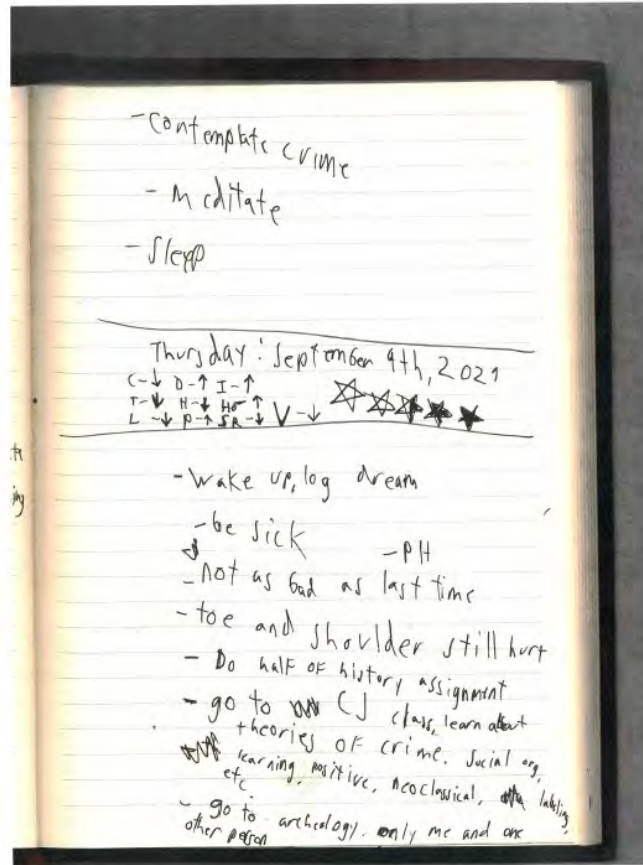 - Contemplate crime
- Meditate
- Sleep
Thursday: September 9th, 2021
C-↓ D-↑ I-↑
T-↓ H-↓ Ho ↑
L -↓ P-↑ SR-↓ V-↓
- Wake up, log dream
- be sick - PH
- not as bad as last time
- toe and shoulder still hurt
- Do half of history assignment
- go to CJ class, learn about
theories of crime. Social org,
learning, positive, neoclassical, labeling,
etc.
- go to archeology. only me and one
other person
ing